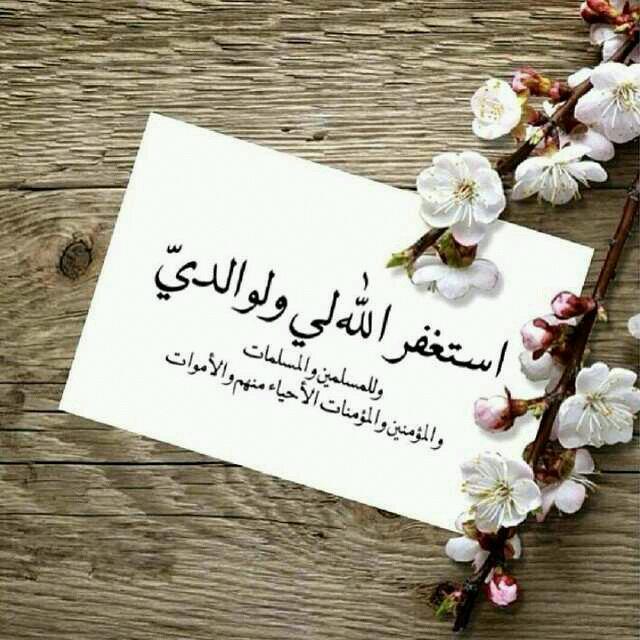 استغفر الله لي ولوالديّ
وللمسلمين والمسلمات
والمؤمنين والمؤمنات الأحياء منهم والأموات